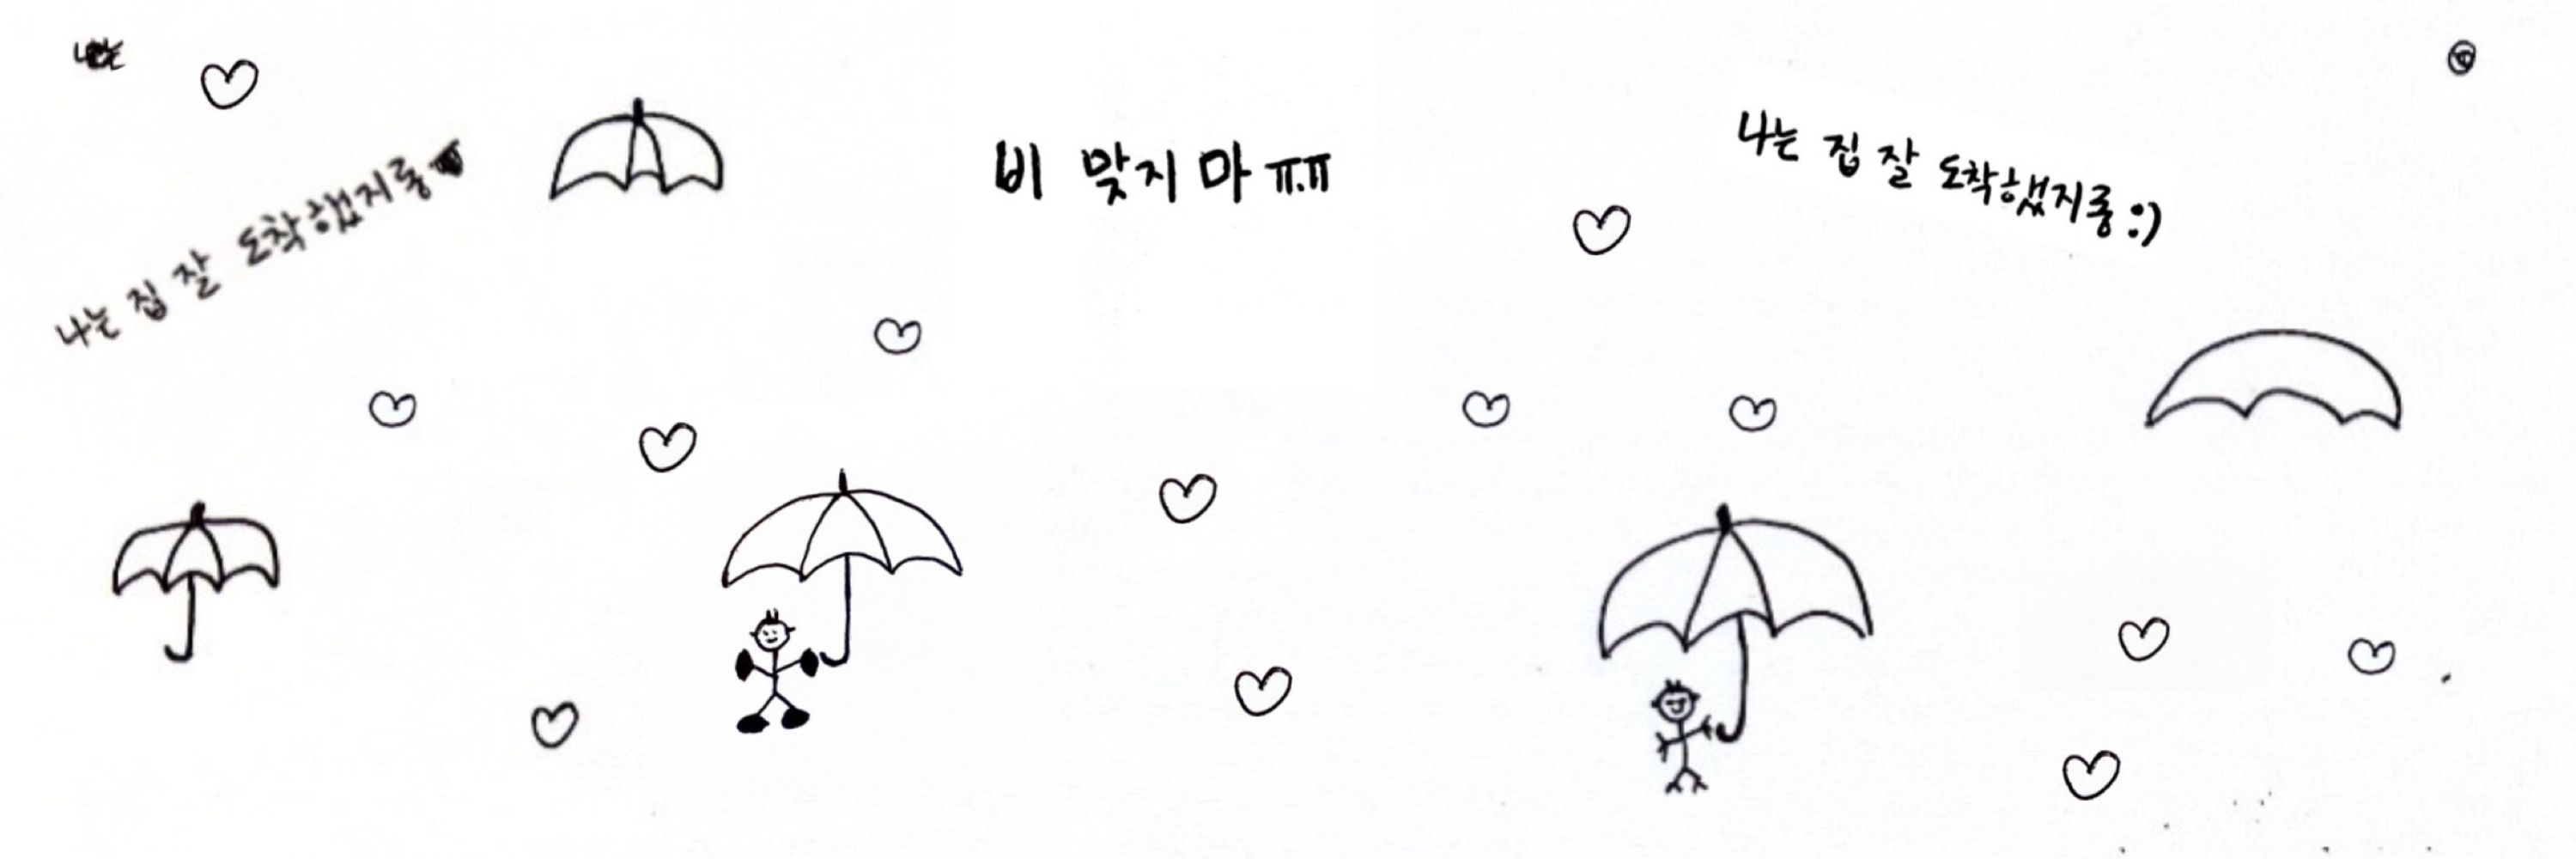 나는 집 잘 도착했지롱
비 맞지 마 ㅠ.ㅠ
나는 집 잘 도착했지롱 :)